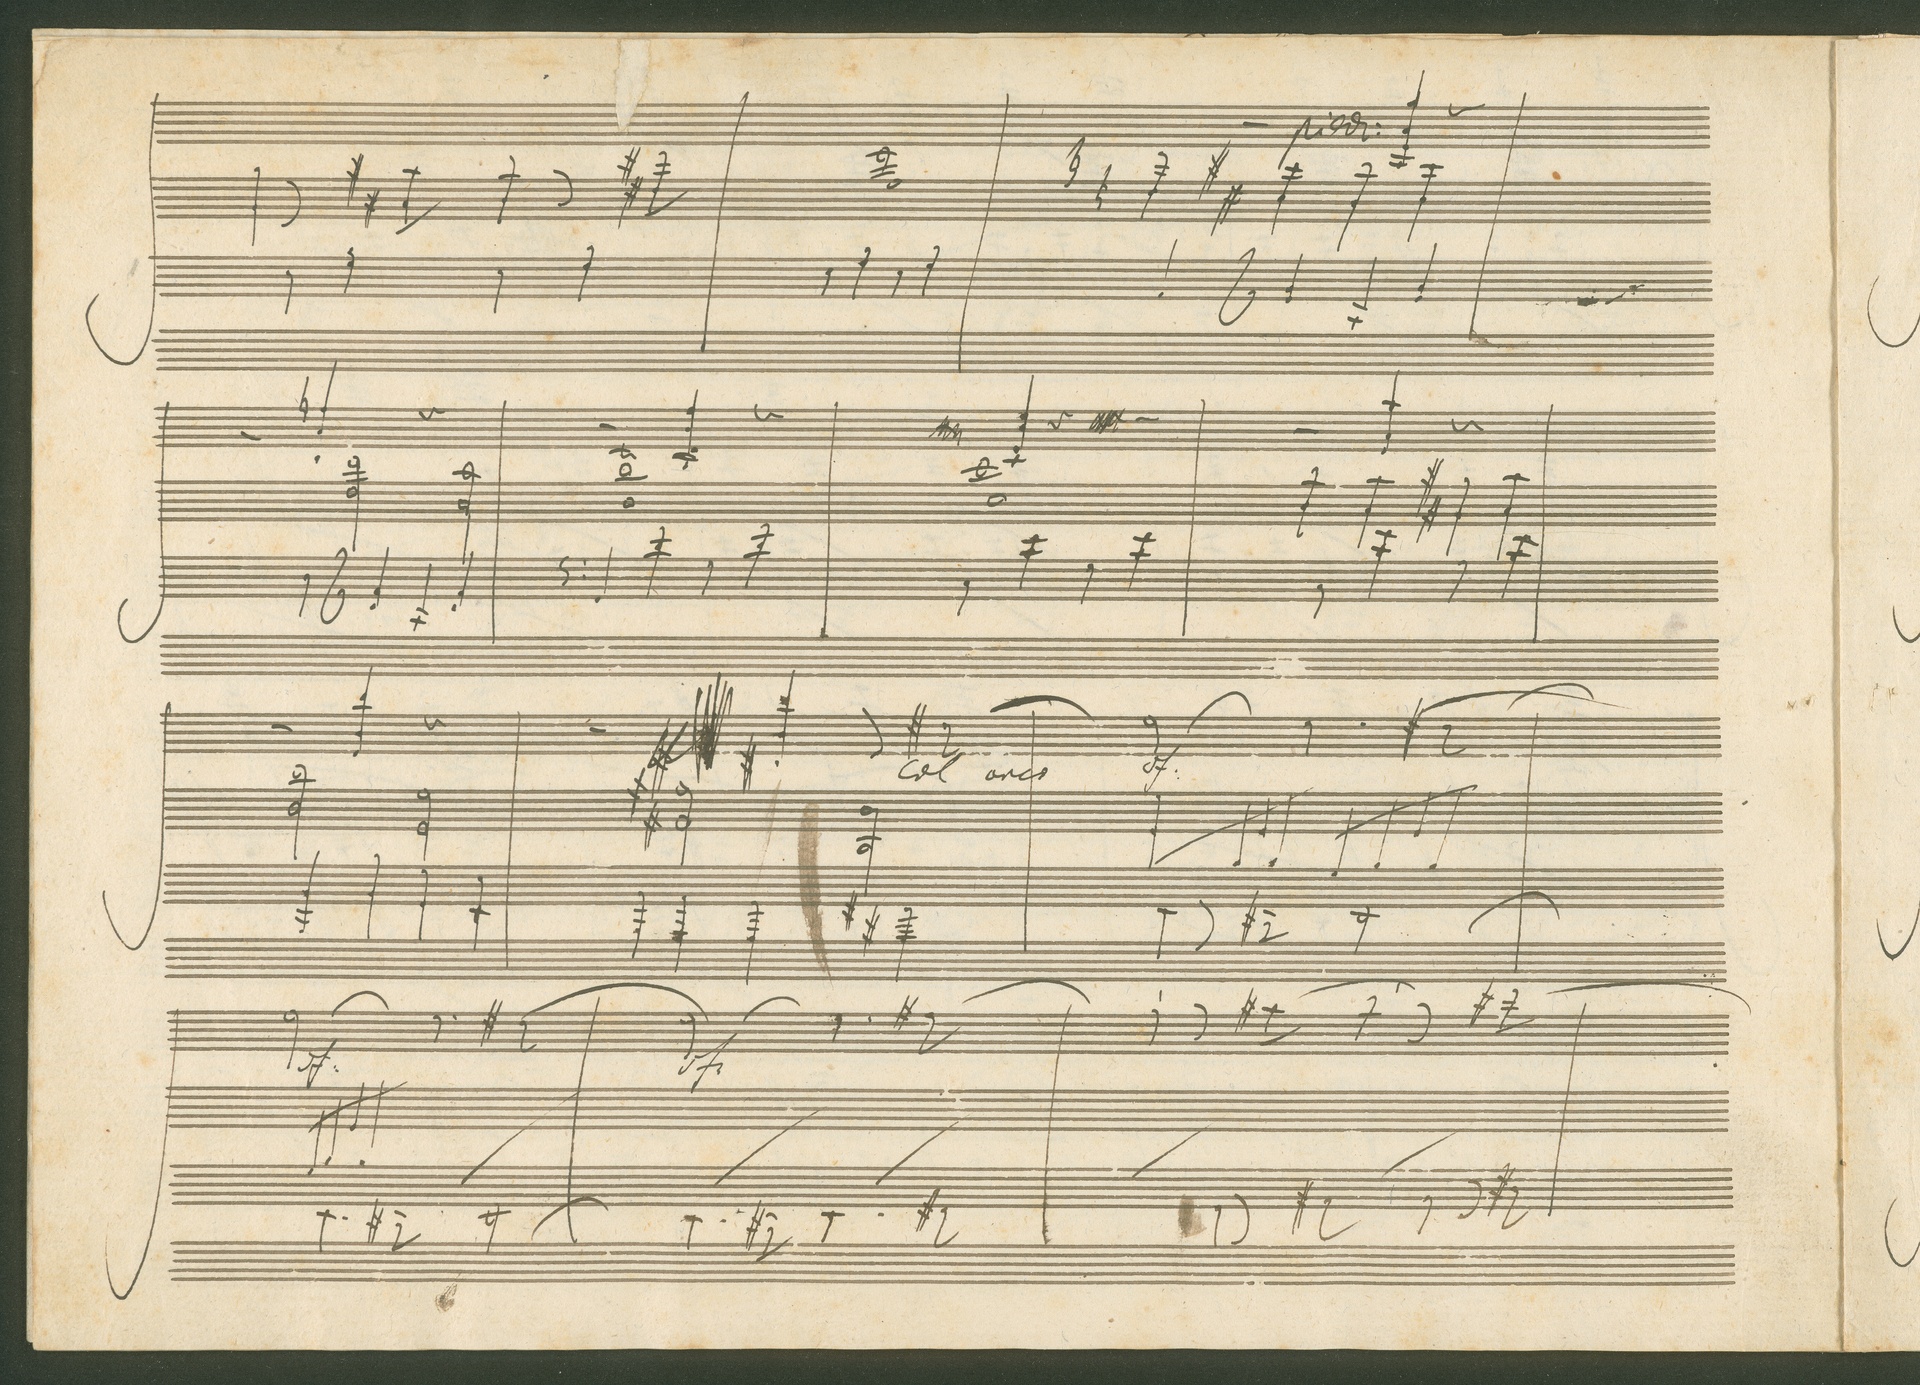 pizz:
col arco
sf.
sf.
sf.